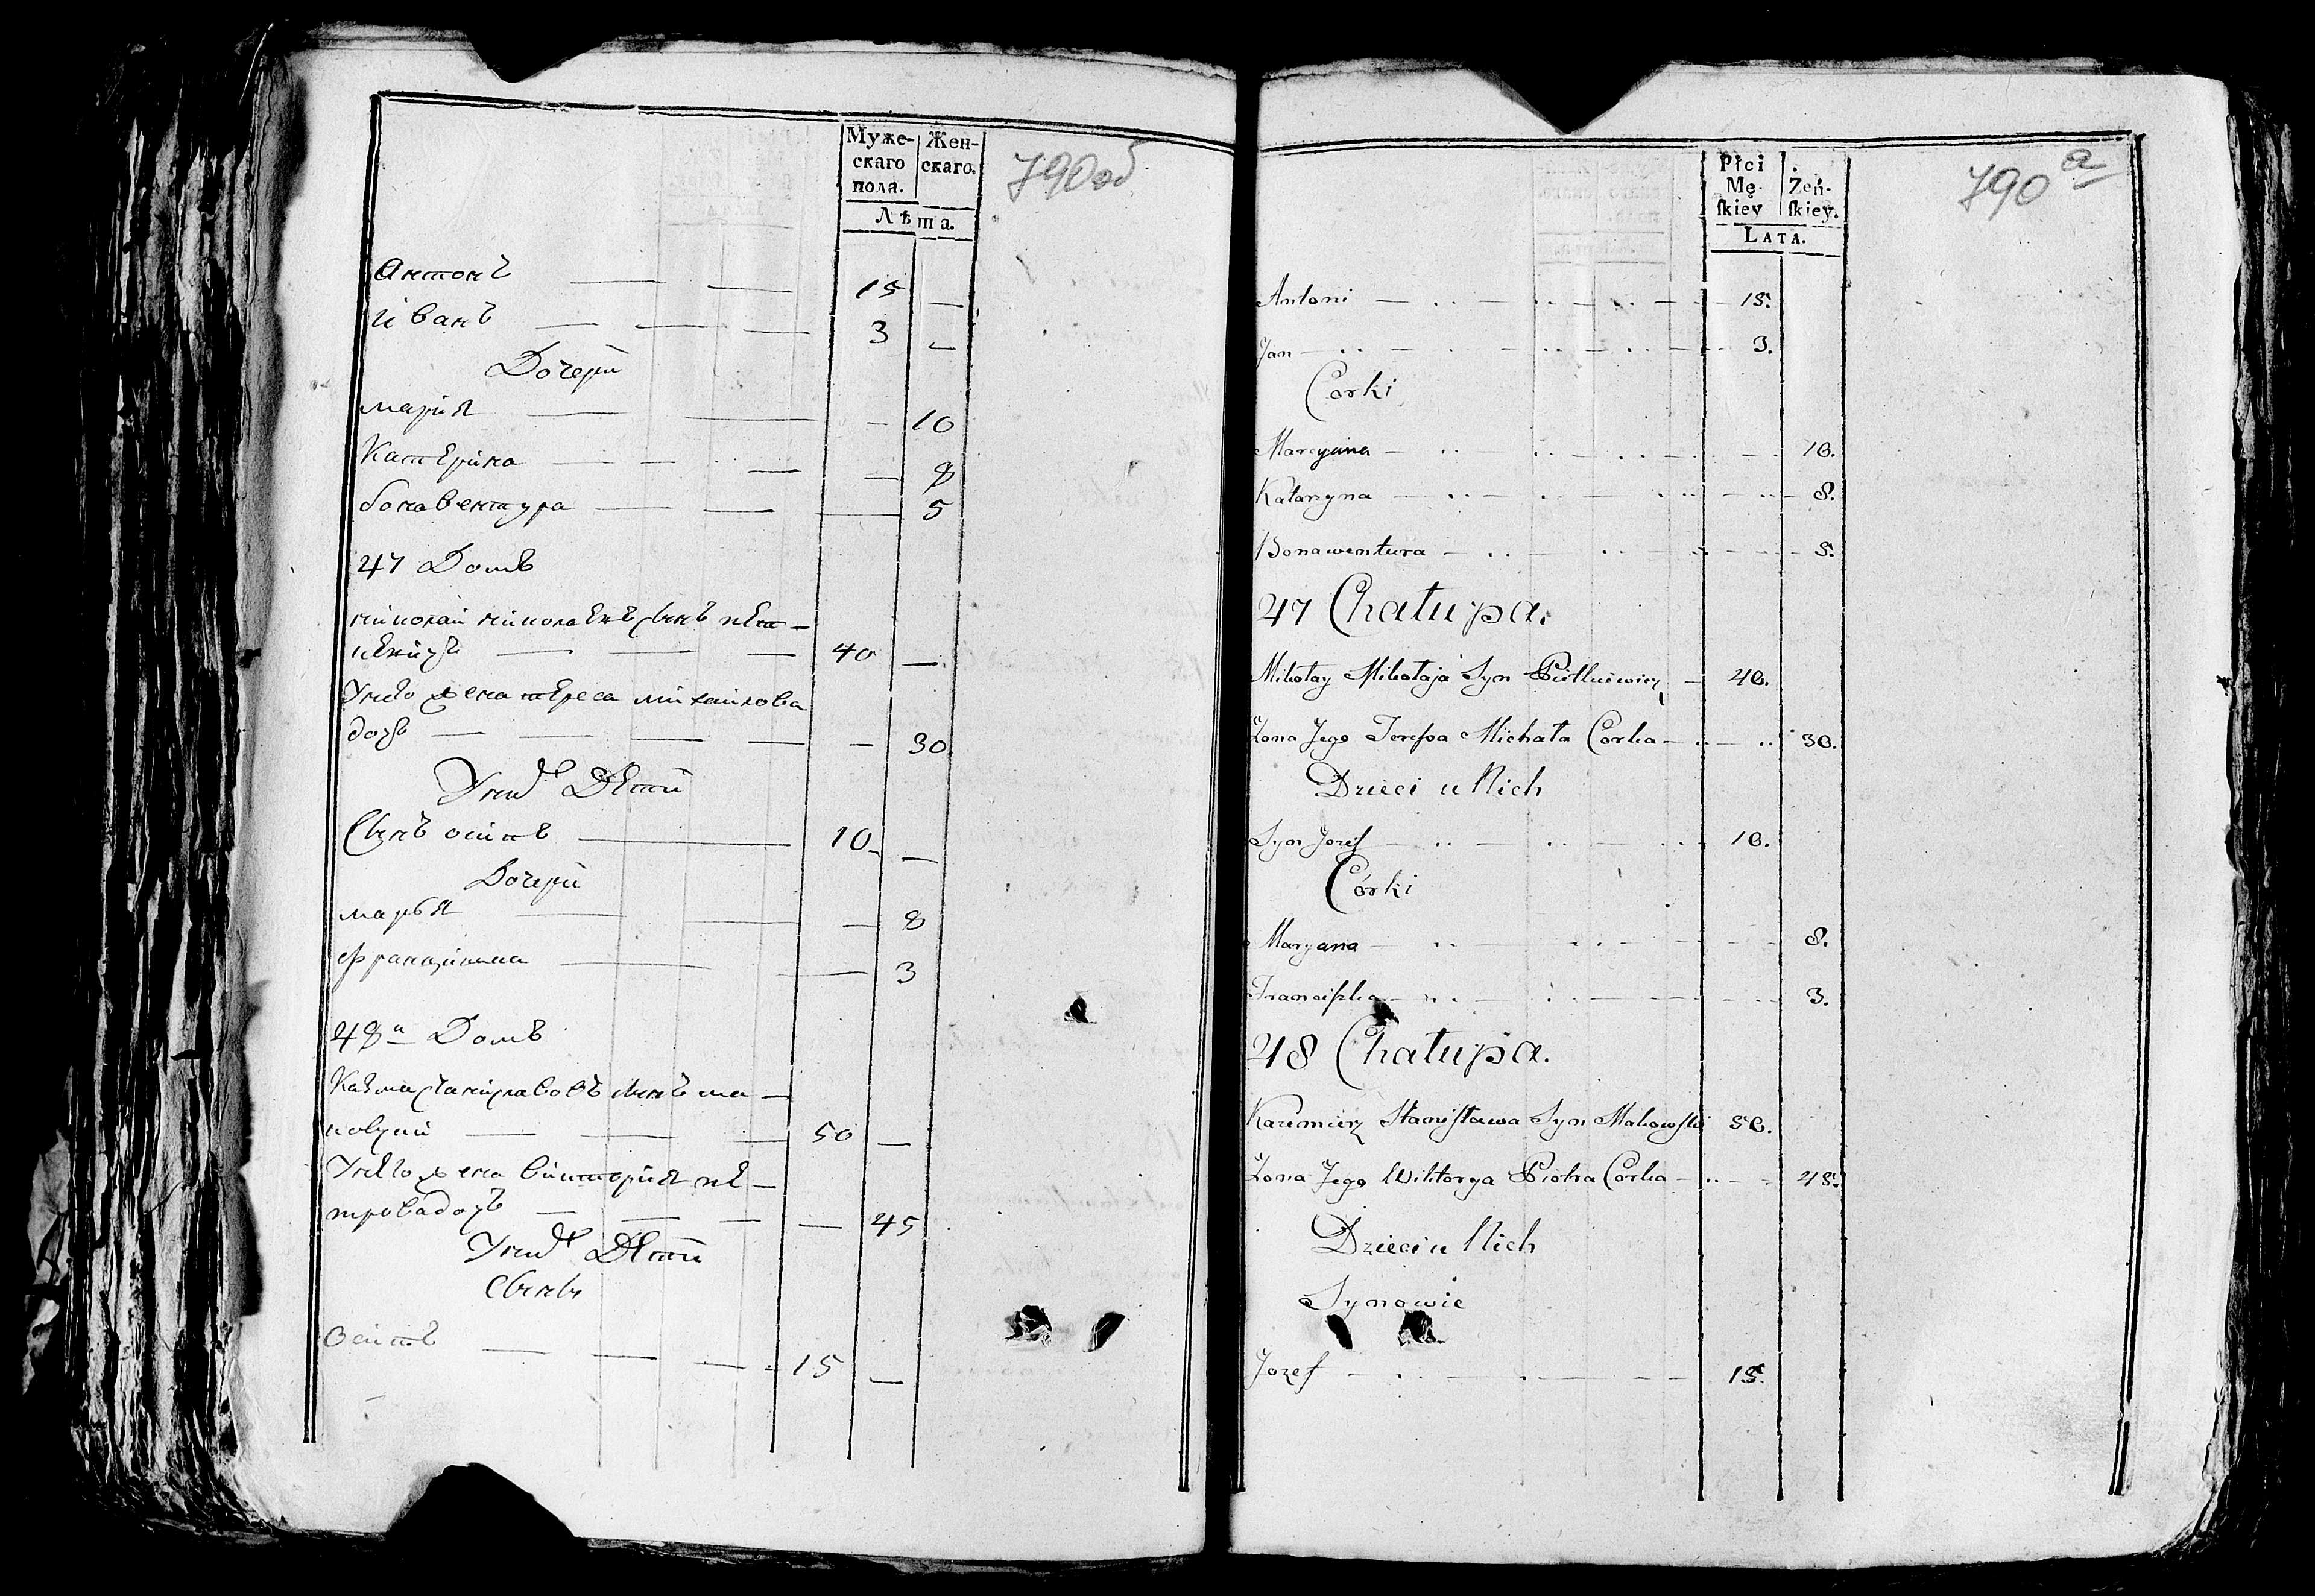 Муже-
скаго
пола.
Жен-
скаго.
Лѣта.
790об
Антонъ 15
Иванъ 3
Дочери
Мария 10
Катерина 8
бонавентура 5
47 Домъ
николай николаевъ сынъ
40
Унего жена тереса михайлова
дочь 30
Уних Дети
Сынъ осипъ 10
Дочери
марья 8
Францишка 3
48й Домъ
Казмир станиславовъ сынъ ма-
ковский 50
Унего жена викторыя пе-
трова дочь 45
Уних Дети
сыны
Осипъ 15
Płci
Mę-
ſkiey
Żeń-
ſkiey.
LATA.
790 а
Antoni 15.
Jan 3.
Corki
Maryana 10.
Katarzyna 8.
Bonawentura 5.
47 Chałupa.
Mikołay Mikołaja Syn Pietkiewicz 40.
Zona Jego Tereſsa Michała Corka 30.
Dzieci u Nich
Syn Jozef 10.
Córki
Maryana 8.
Franciſzka 3.
48 Chałupa.
Kazimierz Staniſława Syn Makowſki 50.
Zona Jego Wiktorya Piotra Corka 45.
Dzieci u Nich
Synowie
Jozef 15.